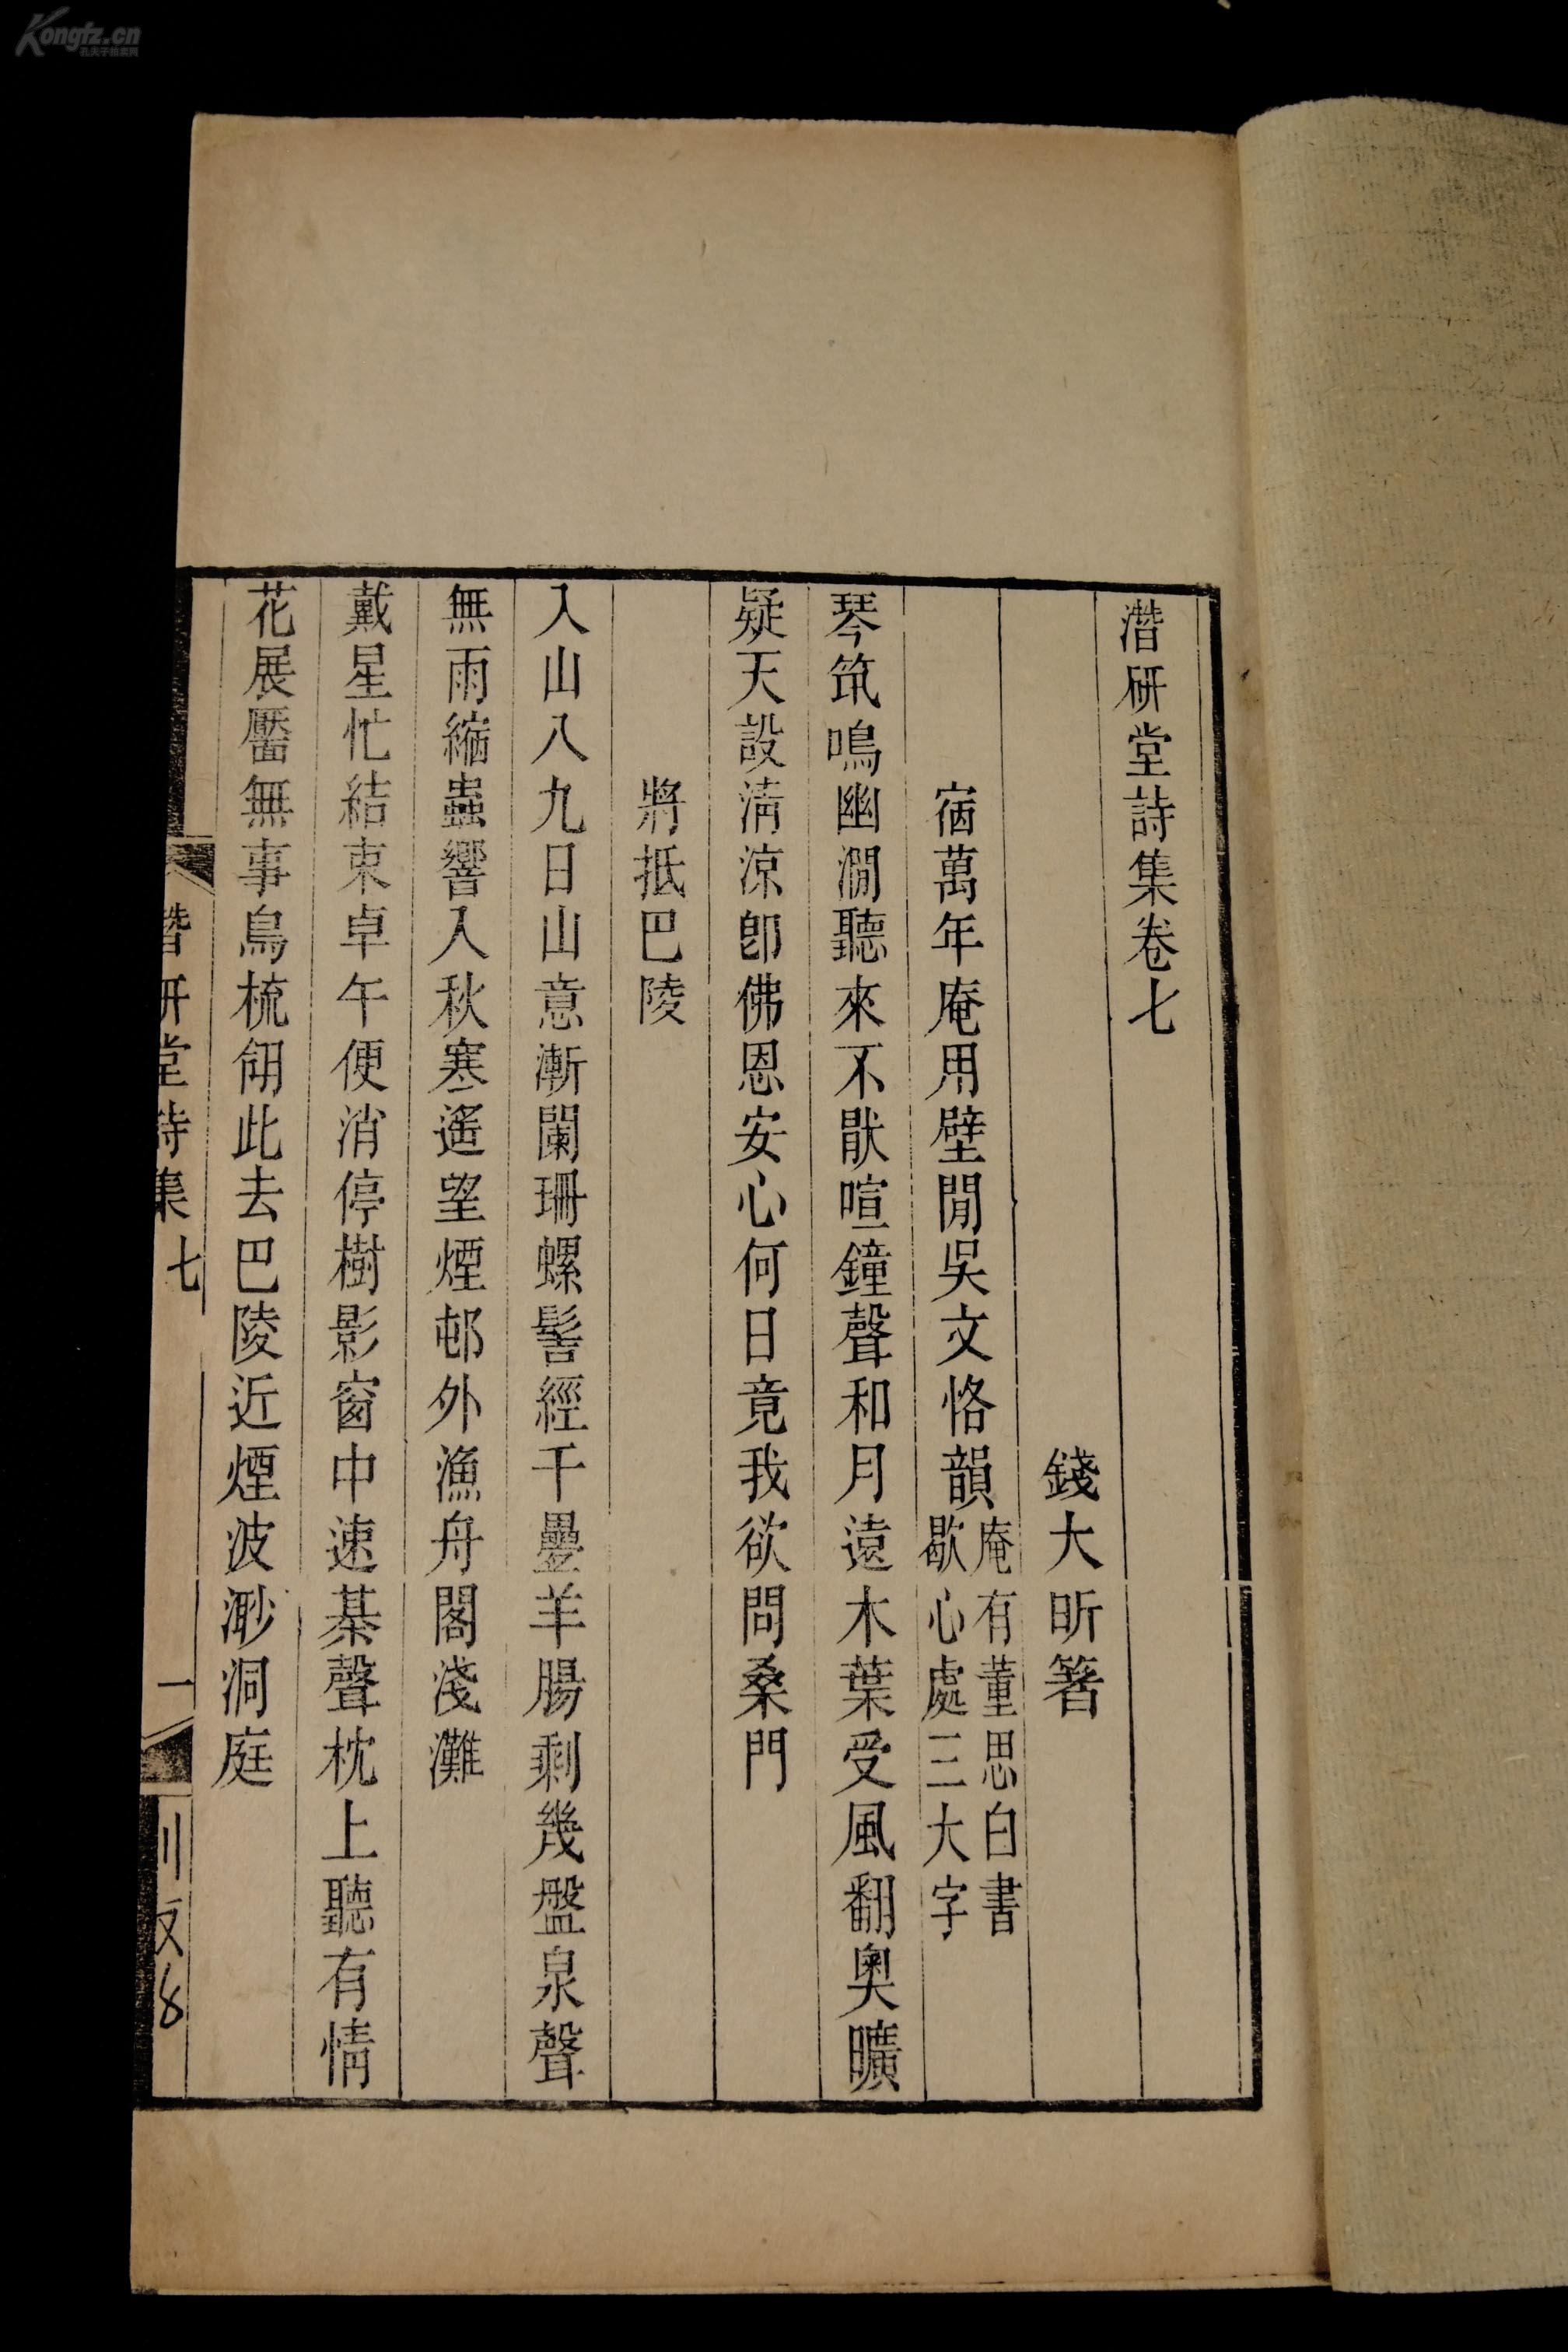 Kongfz.cn
孔夫子旧书网
潛研堂詩集卷七
錢大昕箸
宿萬年庵用壁閒吳文恪韻庵有董思白書
歇心處三大字
琴筑鳴幽澗聽來不猒喧鐘聲和月遠木葉受風翻奧曠
疑天設淸涼卽佛恩安心何日竟我欲問桑門
將抵巴陵
入山八九日山意漸闌珊螺髻經千疊羊腸剩幾盤泉聲
無雨縮蟲響入秋寒遙望煙邨外漁舟閣淺灘
戴星忙結束卓午便消停樹影窗中速棊聲枕上聽有情
花展靨無事鳥梳翎此去巴陵近煙波渺洞庭
潛研堂詩集七
一